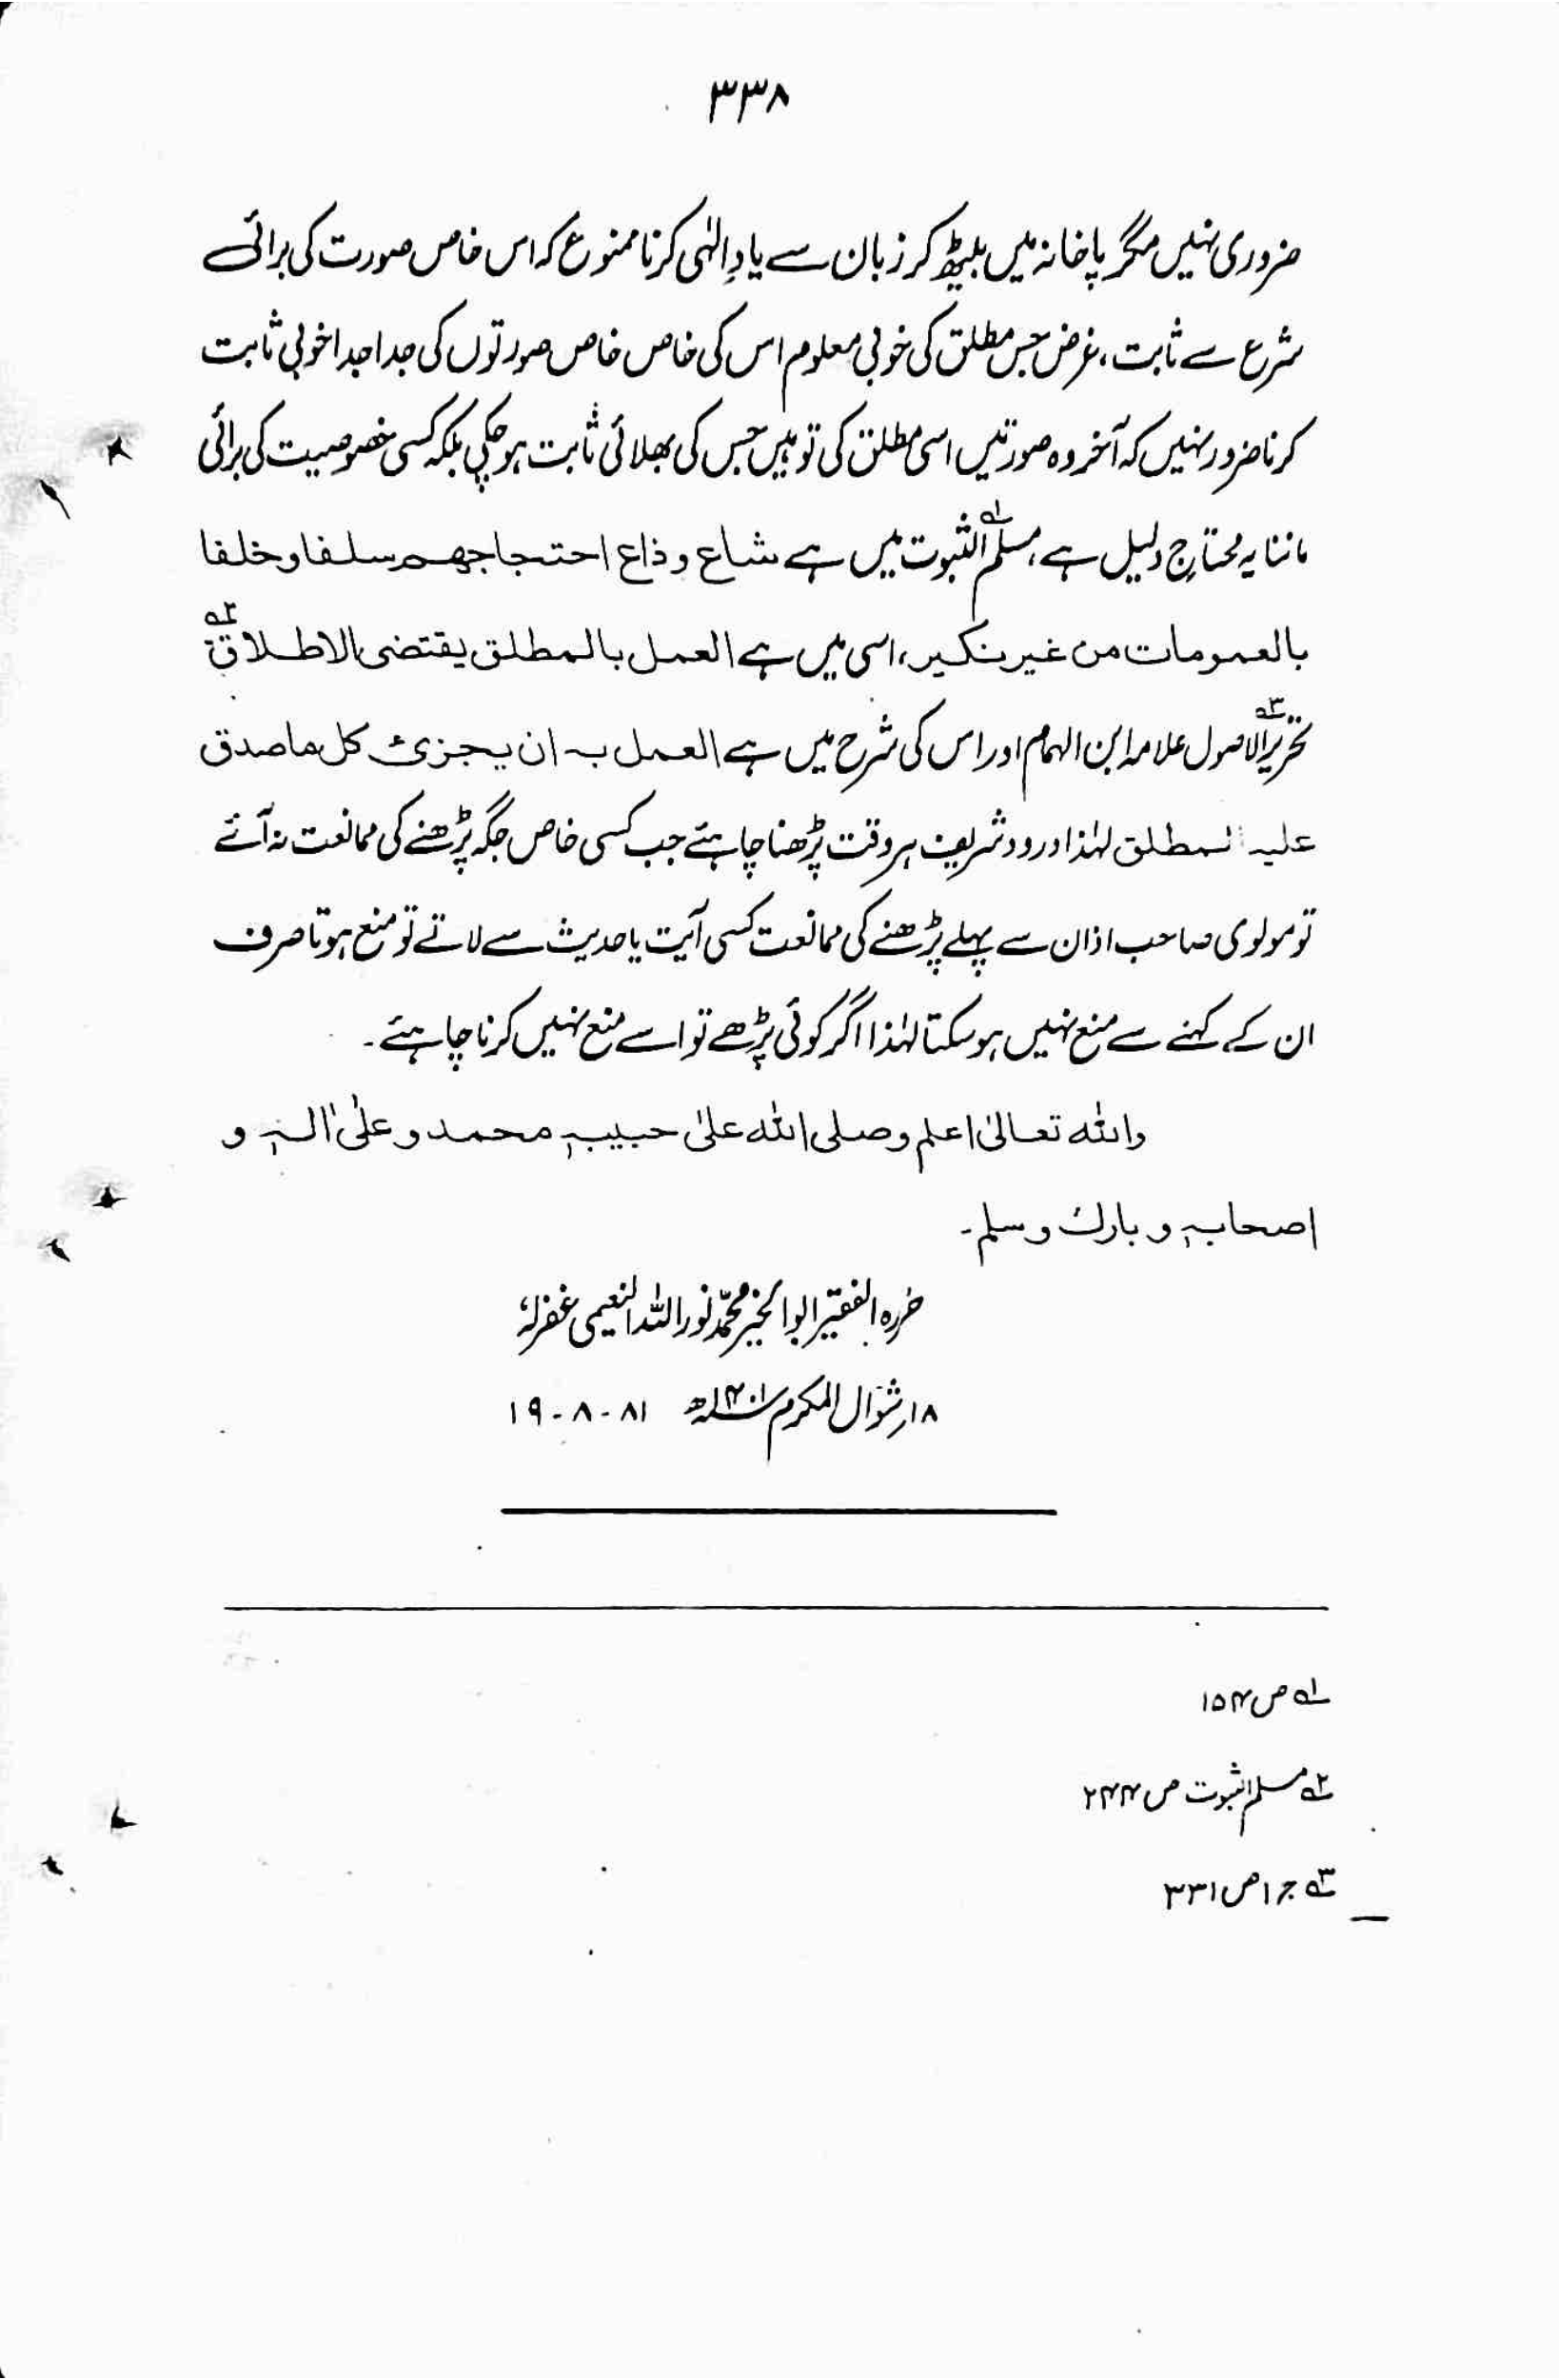 ۳۳۸
ضروری نہیں مگر پاخانہ میں بیٹھ کر زبان سے یادِ الٰہی کرنا ممنوع کہ اس خاص صورت کی برائی
شرع سے ثابت، غرض جس مطلق کی خوبی معلوم اس کی خاص خاص صورتوں کی جدا جدا خوبی ثابت
کرنا ضرور نہیں کہ آخر وہ صورتیں اسی مطلق کی تو ہیں جس کی بھلائی ثابت ہو چکی بلکہ کسی خصوصیت کی برائی
ماننا یہ محتاجِ دلیل ہے، مسلم الثبوت؂۱ میں ہے شاع و ذاع احتجاجهم سلفا و خلفا
بالعمومات من غیر نکیر، اسی میں ہے العمل بالمطلق یقتضی الاطلاق؂۲
تحریر الاصول؂۳ علامہ ابن الہمام اور اس کی شرح میں ہے العمل بہ ان یجزئ کل ما صدق
علیہ المطلق لہٰذا درود شریف ہر وقت پڑھنا چاہئے جب کسی خاص جگہ پڑھنے کی ممانعت نہ آئے
تو مولوی صاحب اذان سے پہلے پڑھنے کی ممانعت کسی آیت یا حدیث سے لاتے تو منع ہوتا صرف
ان کے کہنے سے منع نہیں ہو سکتا لہٰذا اگر کوئی پڑھے تو اسے منع نہیں کرنا چاہئے۔
واللہ تعالیٰ اعلم و صلی اللہ علیٰ حبیبہٖ محمد و علیٰ اٰلہٖ و
اصحابہٖ و بارک و سلم۔
حررہ الفقیر ابوالخیر محمد نور اللہ النعیمی غفرلہٗ
۱۸ر شوال المکرم ۱۴۰۱ھ ۸۱-۸-۱۹
؂۱ ص ۱۵۴
؂۲ مسلم الثبوت ص ۲۴۴
؂۳ ج ۱ ص ۳۳۱